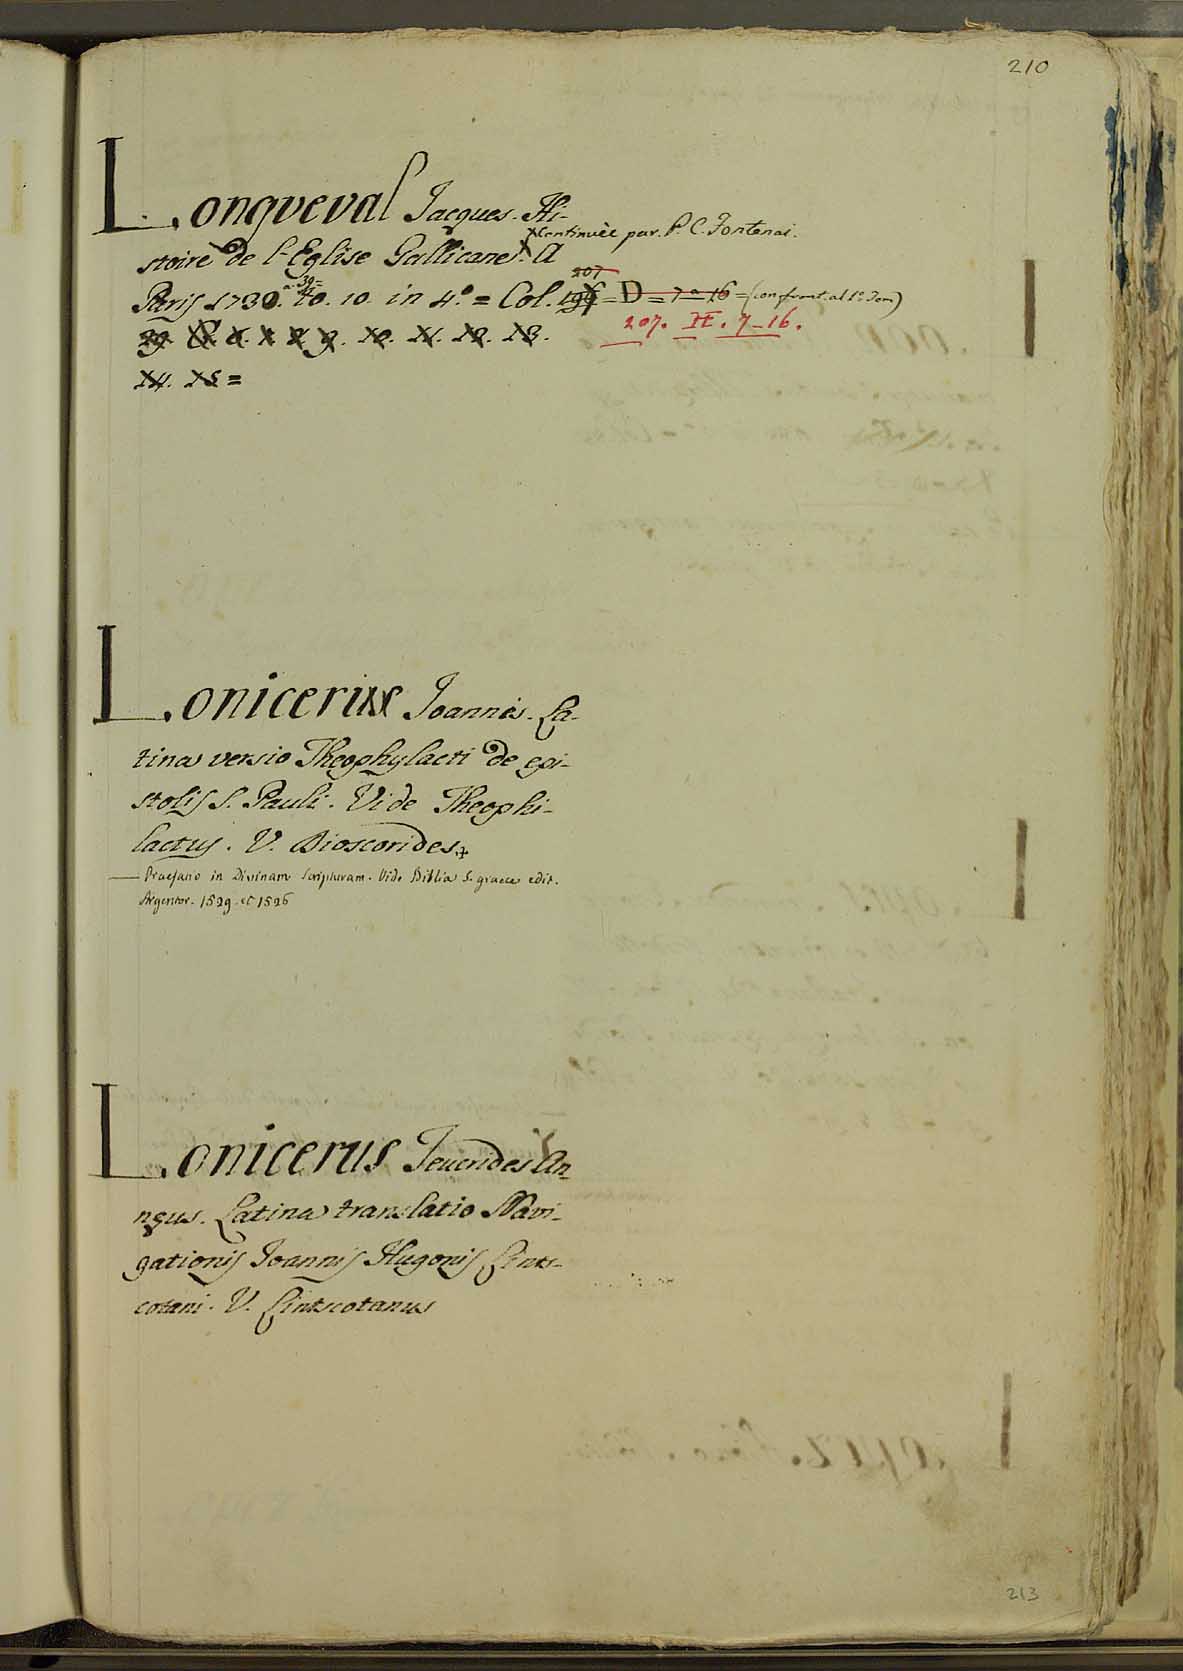 210
Longueval Jacques. Hi-
× Continuèe par. P. C. Fontenai.
stoire de l'Eglise Gallicane. × A
207
Paris 1730. a. 39= to. 10. in 4.º = Col. = D = 7 a 16 = (confront. al 1º. Tom)
207. II. 7_16.
9. 10. 11. 12. 13.
14. 15 =
Lonicerus Joannes. La-
tina versio Theophylacti de epi-
stolis S. Pauli. Vide Theophi-
lactus. V. Dioscorides +
— Praefatio in Divinam Scripturam. Vide Biblia S. graeca edit.
Argentor. 1529. et 1526
Lonicerus Teucrides An-
nęus. Latina translatio Navi-
gationis Joannis Hugonis Lints-
cotani. V. Lintscotanus
213